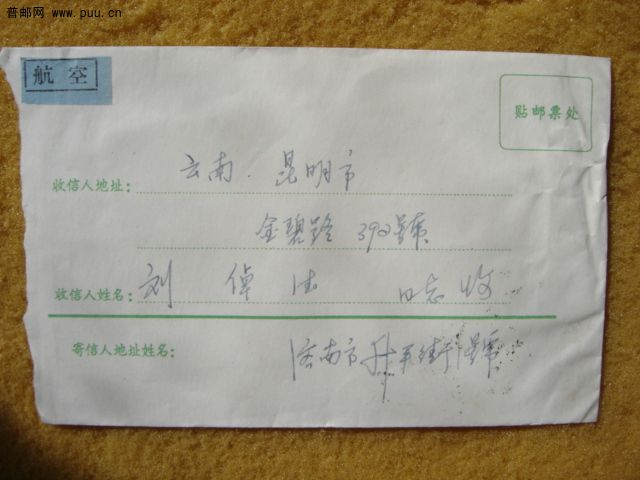 普邮网 www.puu.cn
航空
贴邮票处
收信人地址: 云南. 昆明市
金碧路 392號
收信人姓名: 刘倬 同志收
寄信人地址姓名: 济南市升平街 號